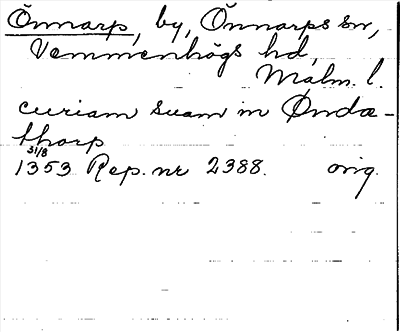 Önnarp, by, Önnarps sn,
Vemmenhögs hd,
Malm. l.
curiam suam in Øndæ-
thorp
31/8
1353 Rep. nr 2388. orig.